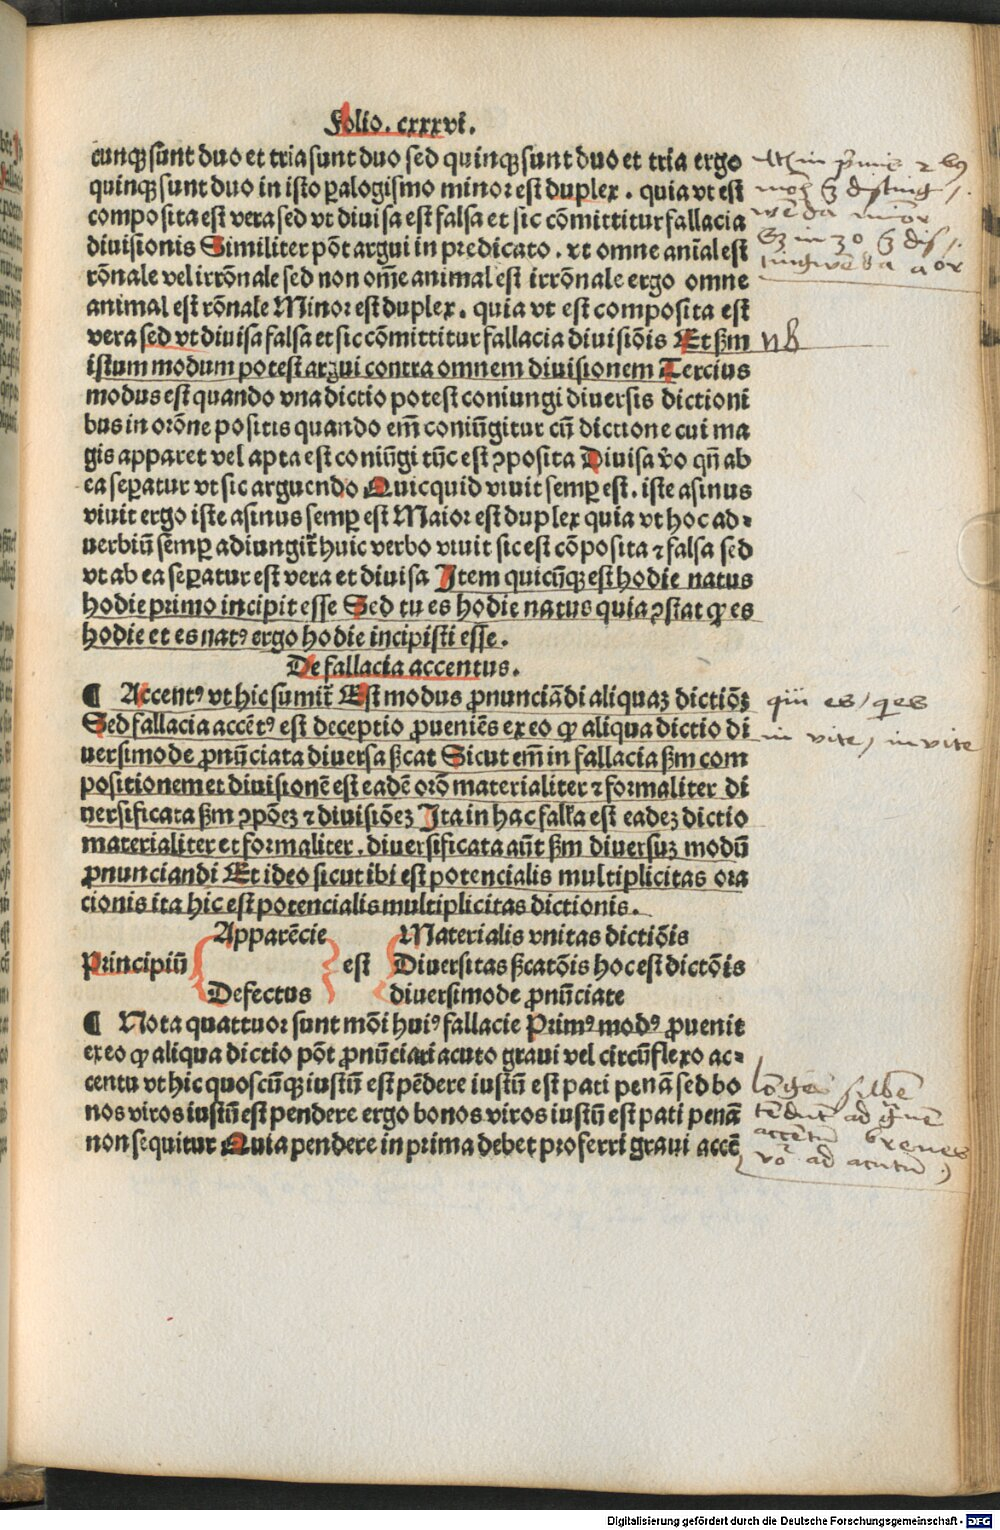 Folio. cxxxvi.
cunqꝫ sunt duo et tria sunt duo sed quinqꝫ sunt duo et tria ergo
quinqꝫ sunt duo in isto ꝑalogismo minor est duplex. quia vt est
composita est vera sed vt diuisa est falsa et sic cōmittitur fallacia
diuisionis Similiter pōt argui in predicato. vt omne anīal est
rōnale vel irrōnale sed non om̄e animal est irrōnale ergo omne
animal est rōnale Minor est duplex. quia vt est composita est
vera sed vt diuisa falsa et sic cōmittitur fallacia diuisiōis Et ẜm
nb
istum modum potest argui contra omnem diuisionem Tercius
modus est quando vna dictio potest coniungi diuersis dictioni
bus in orōne positis quando em̄ coniūgitur cū dictione cui ma
gis apparet vel apta est coniūgi tūc est ꝯposita Diuisa v̄o qn̄ ab
ea seꝑatur vt sic arguendo Quicquid viuit semꝑ est. iste asinus
viuit ergo iste asinus semꝑ est Maior est duplex quia vt hoc ad⸗
uerbiū semꝑ adiungit̄ huic verbo viuit sic est cōposita ⁊ falsa sed
vt ab ea seꝑatur est vera et diuisa Item quicūqꝫ est hodie natus
hodie primo incipit esse Sed tu es hodie natus quia ꝯstat ꝙ es
hodie et es natꝰ ergo hodie incipisti esse.
De fallacia accentus.
¶ Accentꝰ vt hic sumit̄ Est modus ꝓnunciādi aliquaꝫ dictiōꝫ
Sed fallacia accētꝰ est deceptio ꝓueniēs ex eo ꝙ aliqua dictio di
in vite, invite
uersimode ꝓnūciata diuersa ẜcat Sicut em̄ in fallacia ẜm com
positionem et diuisionē est eadē orō materialiter ⁊ formaliter di
uersificata ẜm ꝯpōeꝫ ⁊ diuisiōeꝫ Ita in hac fall̄a est eadeꝫ dictio
materialiter et formaliter. diuersificata aūt ẜm diuersuꝫ modū
ꝓnunciandi Et ideo sicut ibi est potencialis multiplicitas ora
cionis ita hic est potencialis multiplicitas dictionis.
Apparēcie Materialis vnitas dictiōis
Principiū est Diuersitas ẜcatōis hoc est dictōis
Defectus diuersimode ꝓnūciate
¶ Nota quattuor sunt mōi huiꝰ fallacie Primꝰ modꝰ ꝓuenit
ex eo ꝙ aliqua dictio pōt ꝓnūciari acuto graui vel circūflexo ac⸗
centu vt hic quoscūqꝫ iustū est pēdere iustū est pati penā sed bo
nos viros iustū est pendere ergo bonos viros iustū est pati penā
non sequitur Quia pendere in prima debet proferri graui accē
tēdūt ad
accētū breues
v̄o ad acutū
Digitalisierung gefördert durch die Deutsche Forschungsgemeinschaft - DFG